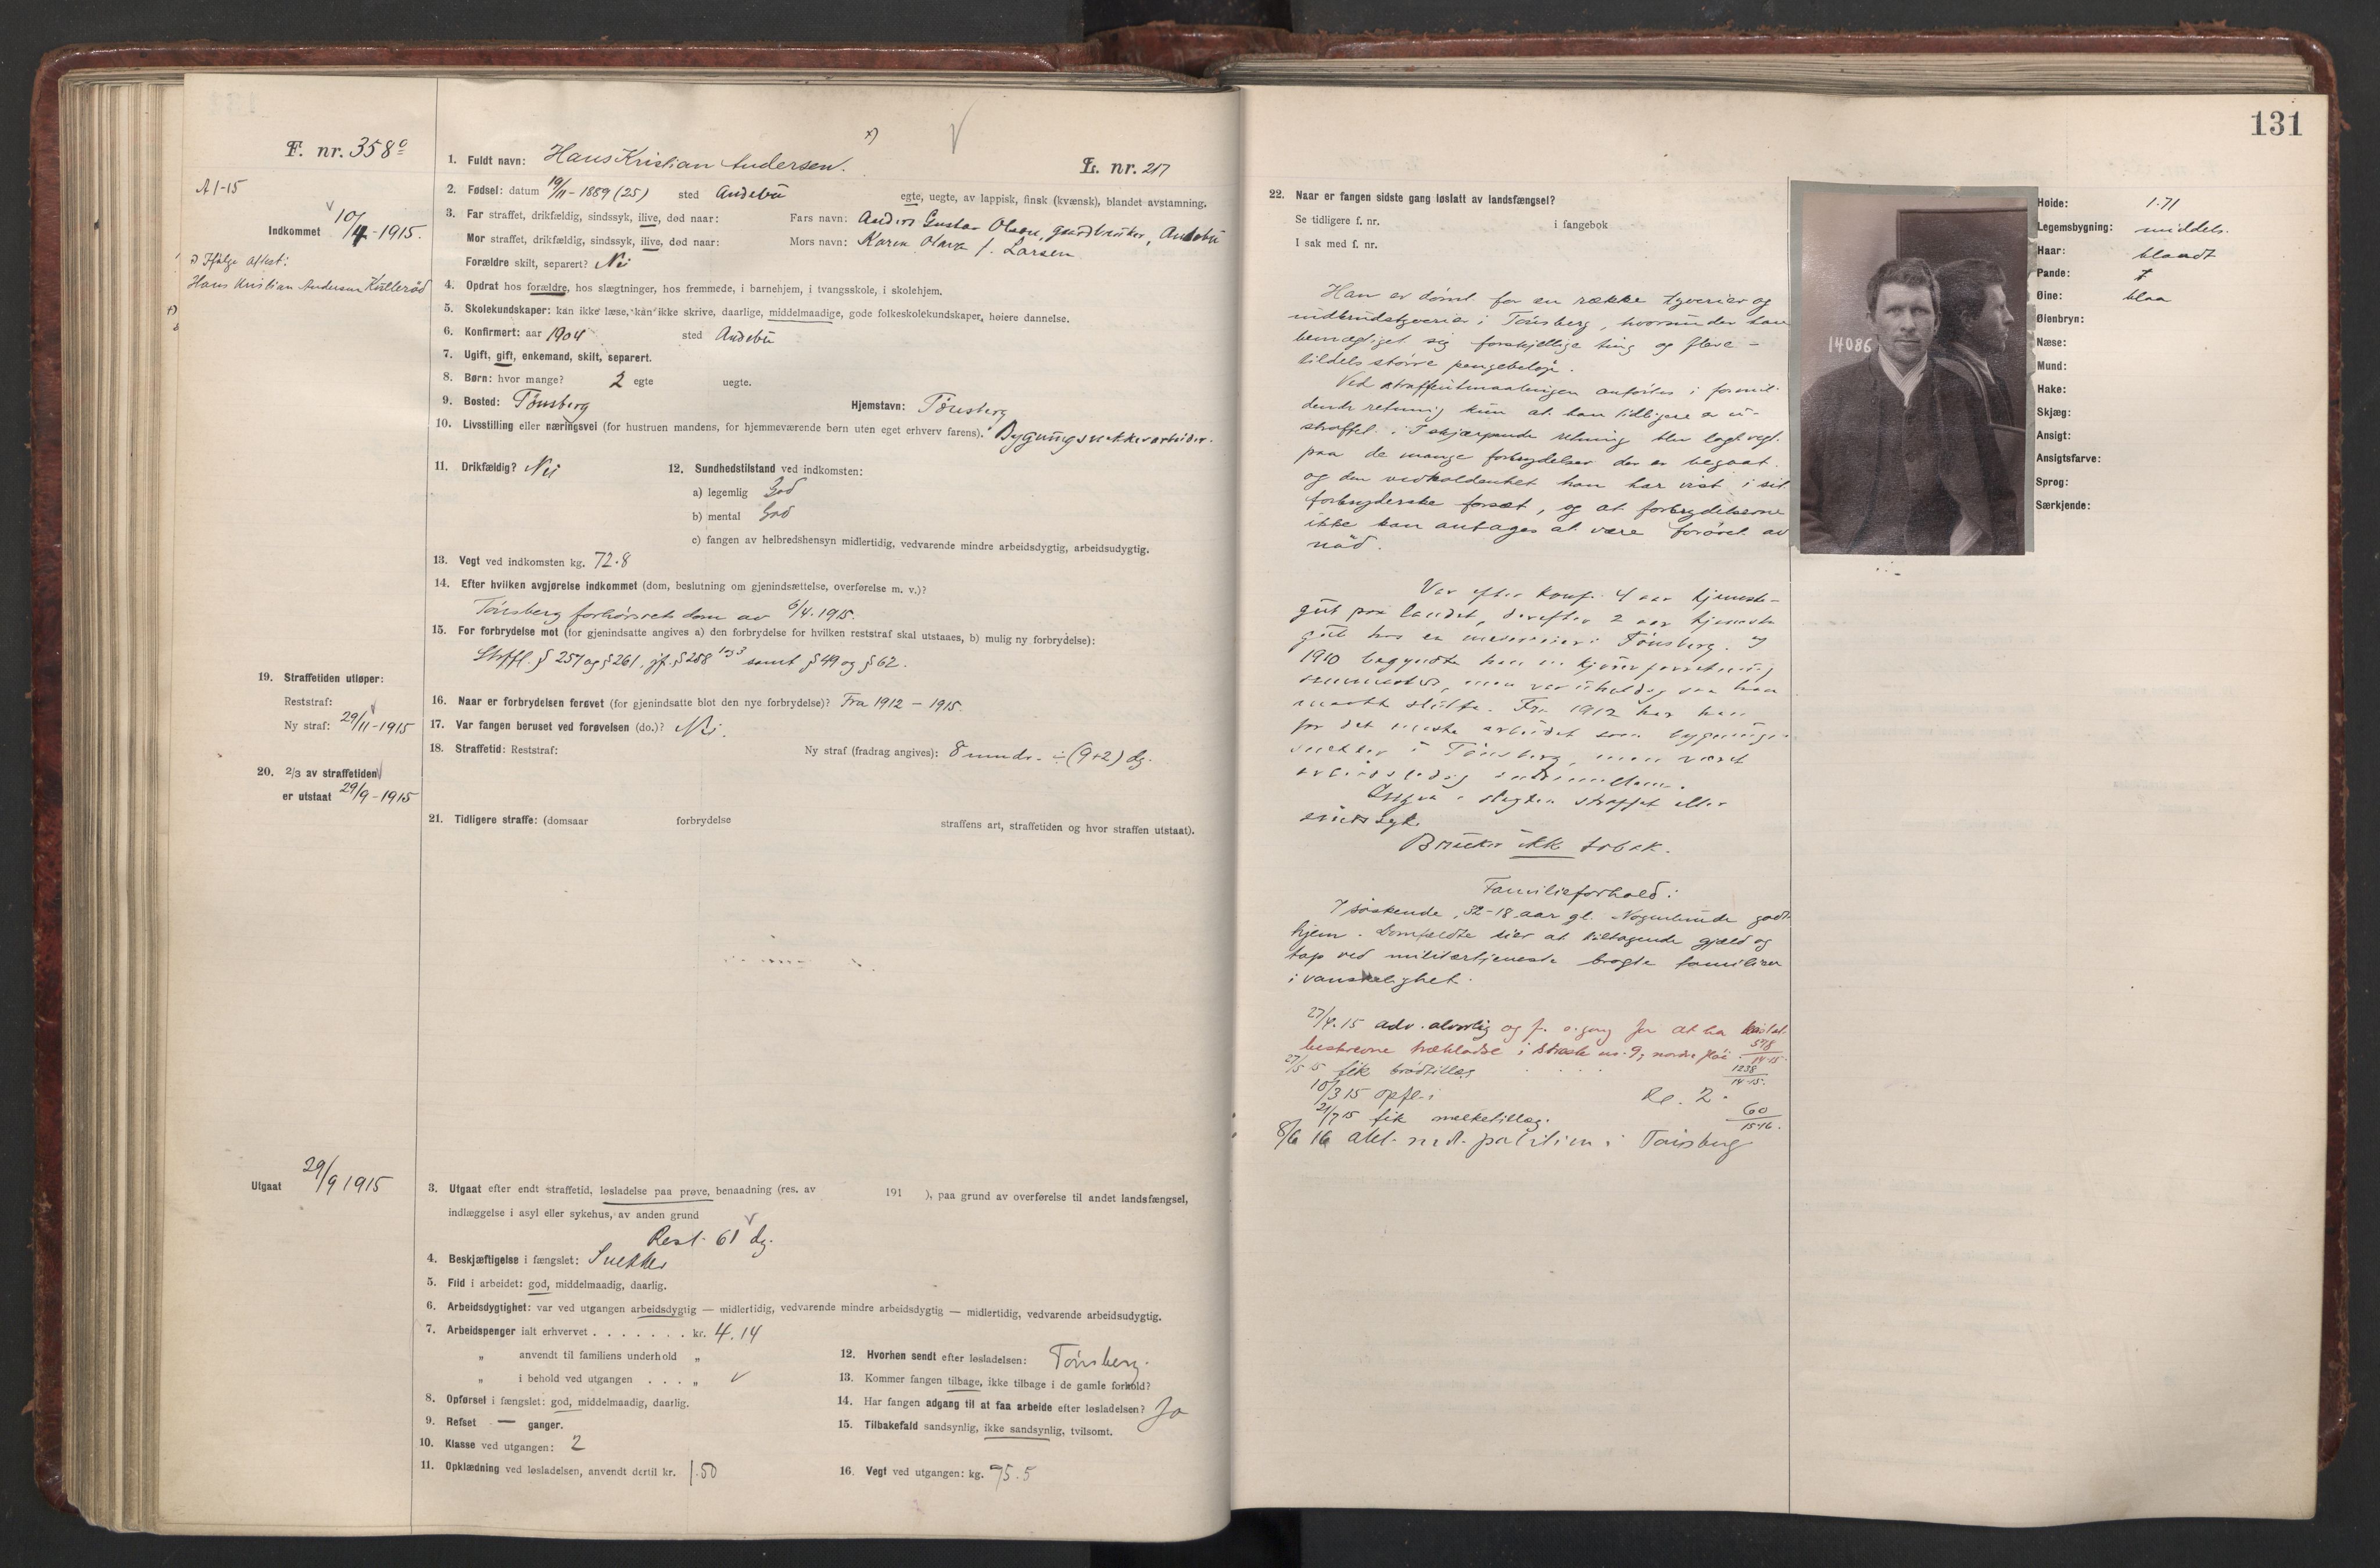 131
F. nr. 358
L. nr. 217
A 1-15
Indkommet 10/4-1915.
x) Ifølge attest:
Hans Kristian Andersen Kullerød
1. Fuldt navn: Hans Kristian Andersen. x)
2. Fødsel: datum 19/11-1889 (25) sted Andebu egte, uegte, av lappisk, finsk (kvænsk), blandet avstamning.
3. Far straffet, drikfældig, sindssyk, ilive, død naar: Fars navn: Anders Gustav Olsen, gaardbruker, Andebu
Mor straffet, drikfældig, sindssyk, ilive, død naar: Mors navn: Karen Olava f. Larsen
Forældre skilt, separert? Nei
4. Opdrat hos forældre, hos slægtninger, hos fremmede, i barnehjem, i tvangsskole, i skolehjem.
5. Skolekundskaper: kan ikke læse, kan ikke skrive, daarlige, middelmaadige, gode folkeskolekundskaper, høiere dannelse.
6. Konfirmert: aar 1904 sted Andebu
7. Ugift, gift, enkemand, skilt, separert.
8. Børn: hvor mange? 2 egte uegte.
9. Bosted: Tønsberg Hjemstavn: Tønsberg
10. Livsstilling eller næringsvei (for hustruen mandens, for hjemmeværende børn uten eget erhverv farens). Bygningssnekkerarbeider.
11. Drikfældig? Nei 12. Sundhedstilstand ved indkomsten:
a) legemlig God
b) mental God
c) fangen av helbredshensyn midlertidig, vedvarende mindre arbeidsdygtig, arbeidsudygtig.
13. Vegt ved indkomsten kg. 72.8
14. Efter hvilken avgjørelse indkommet (dom, beslutning om gjenindsættelse, overførelse m. v.)?
Tønsberg forhørsrets dom av 6/4.1915.
15. For forbrydelse mot (for gjenindsatte angives a) den forbrydelse for hvilken reststraf skal utstaaes, b) mulig ny forbrydelse):
Strffl. § 257 og § 261, jf. § 258 samt § 49 og § 62.
16. Naar er forbrydelsen forøvet (for gjenindsatte blot den nye forbrydelse)? Fra 1912 - 1915.
17. Var fangen beruset ved forøvelsen (do.)? Nei.
18. Straffetid: Reststraf: Ny straf (fradrag angives): 8 mndr. ÷ (9+2) dg.
19. Straffetiden utløper:
Reststraf:
Ny straf: 29/11-1915
20. 2/3 av straffetiden
er utstaat 29/9-1915
21. Tidligere straffe: (domsaar forbrydelse straffens art, straffetiden og hvor straffen utstaat).
Utgaat 29/9 1915
3. Utgaat efter endt straffetid, løsladelse paa prøve, benaadning (res. av 191 ), paa grund av overførelse til andet landsfængsel,
indlæggelse i asyl eller sykehus, av anden grund
Rest- 61 dg.
4. Beskjæftigelse i fængslet: Snekker
5. Flid i arbeidet: god, middelmaadig, daarlig.
6. Arbeidsdygtighet: var ved utgangen arbeidsdygtig — midlertidig, vedvarende mindre arbeidsdygtig — midlertidig, vedvarende arbeidsudygtig.
7. Arbeidspenger ialt erhvervet . . . . . . . kr. 4.14
„ anvendt til familiens underhold „
„ i behold ved utgangen . . . „
8. Opførsel i fængslet: god, middelmaadig, daarlig.
9. Refset — ganger.
10. Klasse ved utgangen: 2
11. Opklædning ved løsladelsen, anvendt dertil kr. 1.50
12. Hvorhen sendt efter løsladelsen: Tønsberg.
13. Kommer fangen tilbage, ikke tilbage i de gamle forhold?
14. Har fangen adgang til at faa arbeide efter løsladelsen? Ja
15. Tilbakefald sandsynlig, ikke sandsynlig, tvilsomt.
16. Vegt ved utgangen: kg. 75.5
22. Naar er fangen sidste gang løslatt av landsfængsel?
Se tidligere f. nr. i fangebok
I sak med f. nr.
Han er dømt for en række tyverier og
indbrudstyverier i Tønsberg, hvorunder han
bemægtiget sig forskjellige ting og flere -
tildels større pengebeløp.
Ved straffeutmaalingen anførtes i formil-
dende retning kun at han tidligere er u-
straffet. I skjærpende retning blev lagt vegt
paa de mange forbrydelser der er begaat
og den vedholdenhet han har vist i sit
forbryderske forsæt, og at forbrydelserne
ikke kan antages at være forøvet av
nød.
Var efter konf. 4 aar tjeneste-
gut paa landet, derefter 2 aar tjeneste
gut hos en i Tønsberg.
1910 begyndte han en
men var uheldig saa han
maatte slutte. Fra 1912 har han
for det meste arbeidet som bygnings-
snekker i Tønsberg, men været
arbeidsledig indimellem.
Ingen i slegten straffet eller
sindssyk.
Bruker ikke tobak.
Familieforhold:
7 søskende, 32-18 aar gl. Nogenlunde godt
hjem. Domfældte sier at tiltagende gjæld og
tap ved militærtjeneste bragte familien
i vanskelighet.
27/4.15 adv. alvorlig og f. for at ha
beskrevne i straale nr. 9, nordre fløi 578/14-15.
27/5 15 fik brødtillæg . . . . 1238/14-15.
10/3 15 opfl. i Kl. 2.
21/7 15 fik melketillæg. 60/15-16.
8/6 16 politiet i Tønsberg
14086
Høide: 1.71
Legemsbygning: middels.
Haar: blondt
Pande:
Øine: blaa
Øienbryn:
Næse:
Mund:
Hake:
Skjæg:
Ansigt:
Ansigtsfarve:
Sprog:
Særkjende: